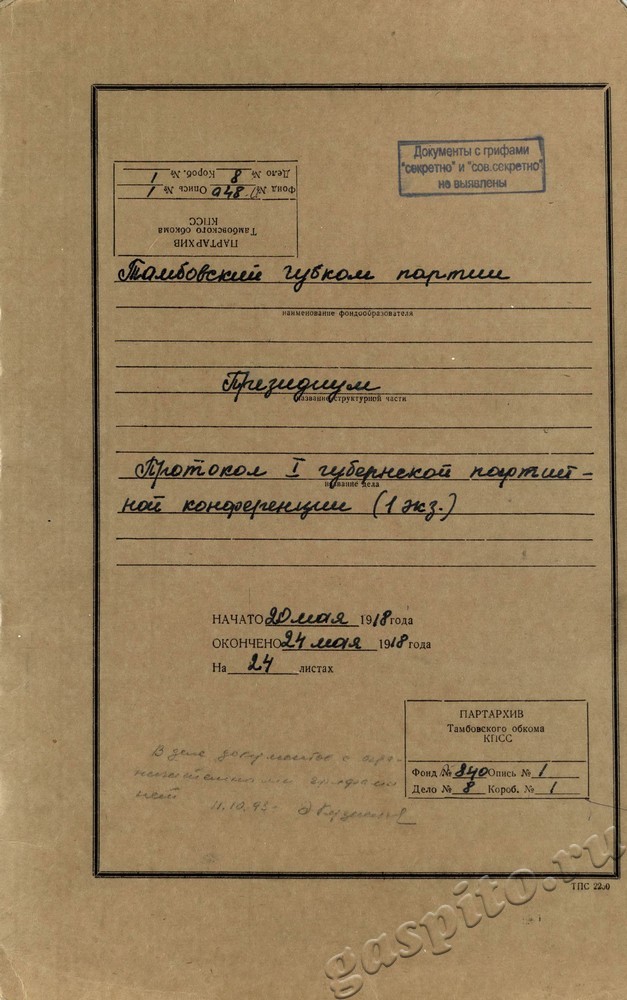 Документы с грифами
"секретно" и "сов.секретно"
не выявлены
ПАРТАРХИВ
Тамбовского обкома
КПСС
Фонд № Опись № 1
Дело № 8 Короб. № 1
Тамбовский губком партии
наименование фондообразователя
Президиум
название структурной части
Протокол I губернской партий-
название дела
ной конференции (1 экз.)
НАЧАТО 20 мая 1918 года
ОКОНЧЕНО 24 мая 1918 года
На 24 листах
ПАРТАРХИВ
Тамбовского обкома
КПСС
Фонд № 840 Опись № 1
Дело № 8 Короб. № 1
В деле документов с огра-
ничительными грифами
нет
11.10.93
ТПС
gaspito.ru